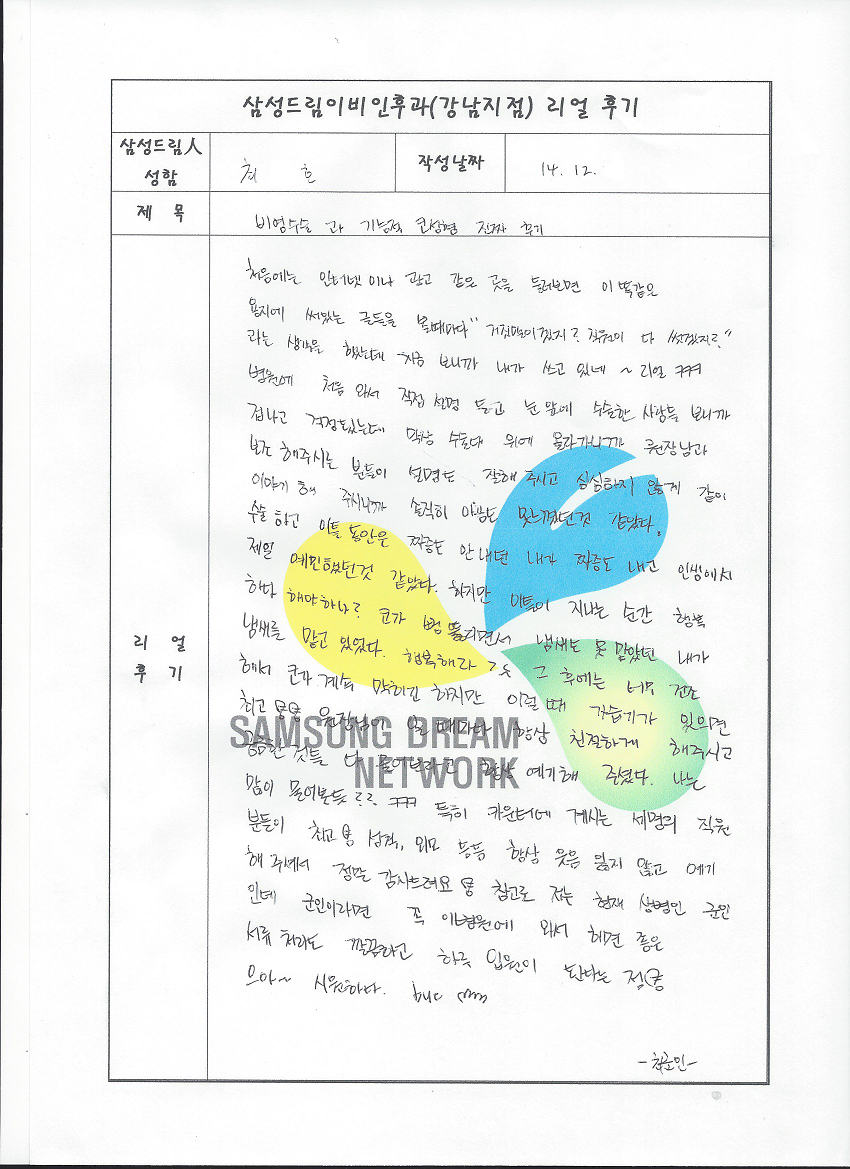 삼성드림이비인후과(강남지점) 리얼 후기
삼성드림人 성함
최 호
작성날짜
14. 12.
제 목
비염수술 과 기능적 코성형 진짜 후기
리 얼
후 기
처음에는 인터넷 이나 광고 같은 곳을 둘러보면 이 똑같은
용지에 써있는 글들을 볼때마다 " 거짓말이겠지? 직원이 다 썼겠지?"
라는 생각을 했었는데 지금 보니까 내가 쓰고 있네 ~ 리얼 ㅋㅋㅋ
병원에 처음 와서 직접 설명 듣고 눈 앞에 수술한 사람들 보니까
겁나고 걱정도됐는데 막상 수술대 위에 올라가니까 원장님과
보조 해주시는 분들이 설명도 잘해 주시고 심심하지 않게 같이
이야기 해 주시니까 솔직히 아픔도 못느꼈던것 같았다.
수술 하고 이틀 동안은 짜증도 안내던 내가 짜증도 내고 인생에서
제일 예민했던것 같았다. 하지만 이틀이 지나는 순간 행복
하다 해야하나? 코가 뻥 뚫리면서 냄새도 못 맡았던 내가
냄새를 맡고 있었다. 행복해라 그 후에는 너무 건조
해서 코가 계속 막히긴 하지만 이럴 때 가습기가 있으면
최고 원장님이 올 때마다 항상 친절하게 해주시고
궁금한 것들 다 물어보라고 항상 얘기해 주셨다. 나는
많이 물어본듯?? ㅋㅋㅋ 특히 카운터에 계시는 세명의 직원
분들이 최고 성격, 외모 등등 항상 웃음 잃지 않고 얘기
해 주셔서 정말 감사드려요 참고로 저는 현재 상병인 군인
인데 군인이라면 꼭 이병원에 와서 하면 좋은
서류 처리도 깔끔하고 하루 입원이 된다는 점
으아~ 시원하다.
SAMSUNG DREAM
NETWORK